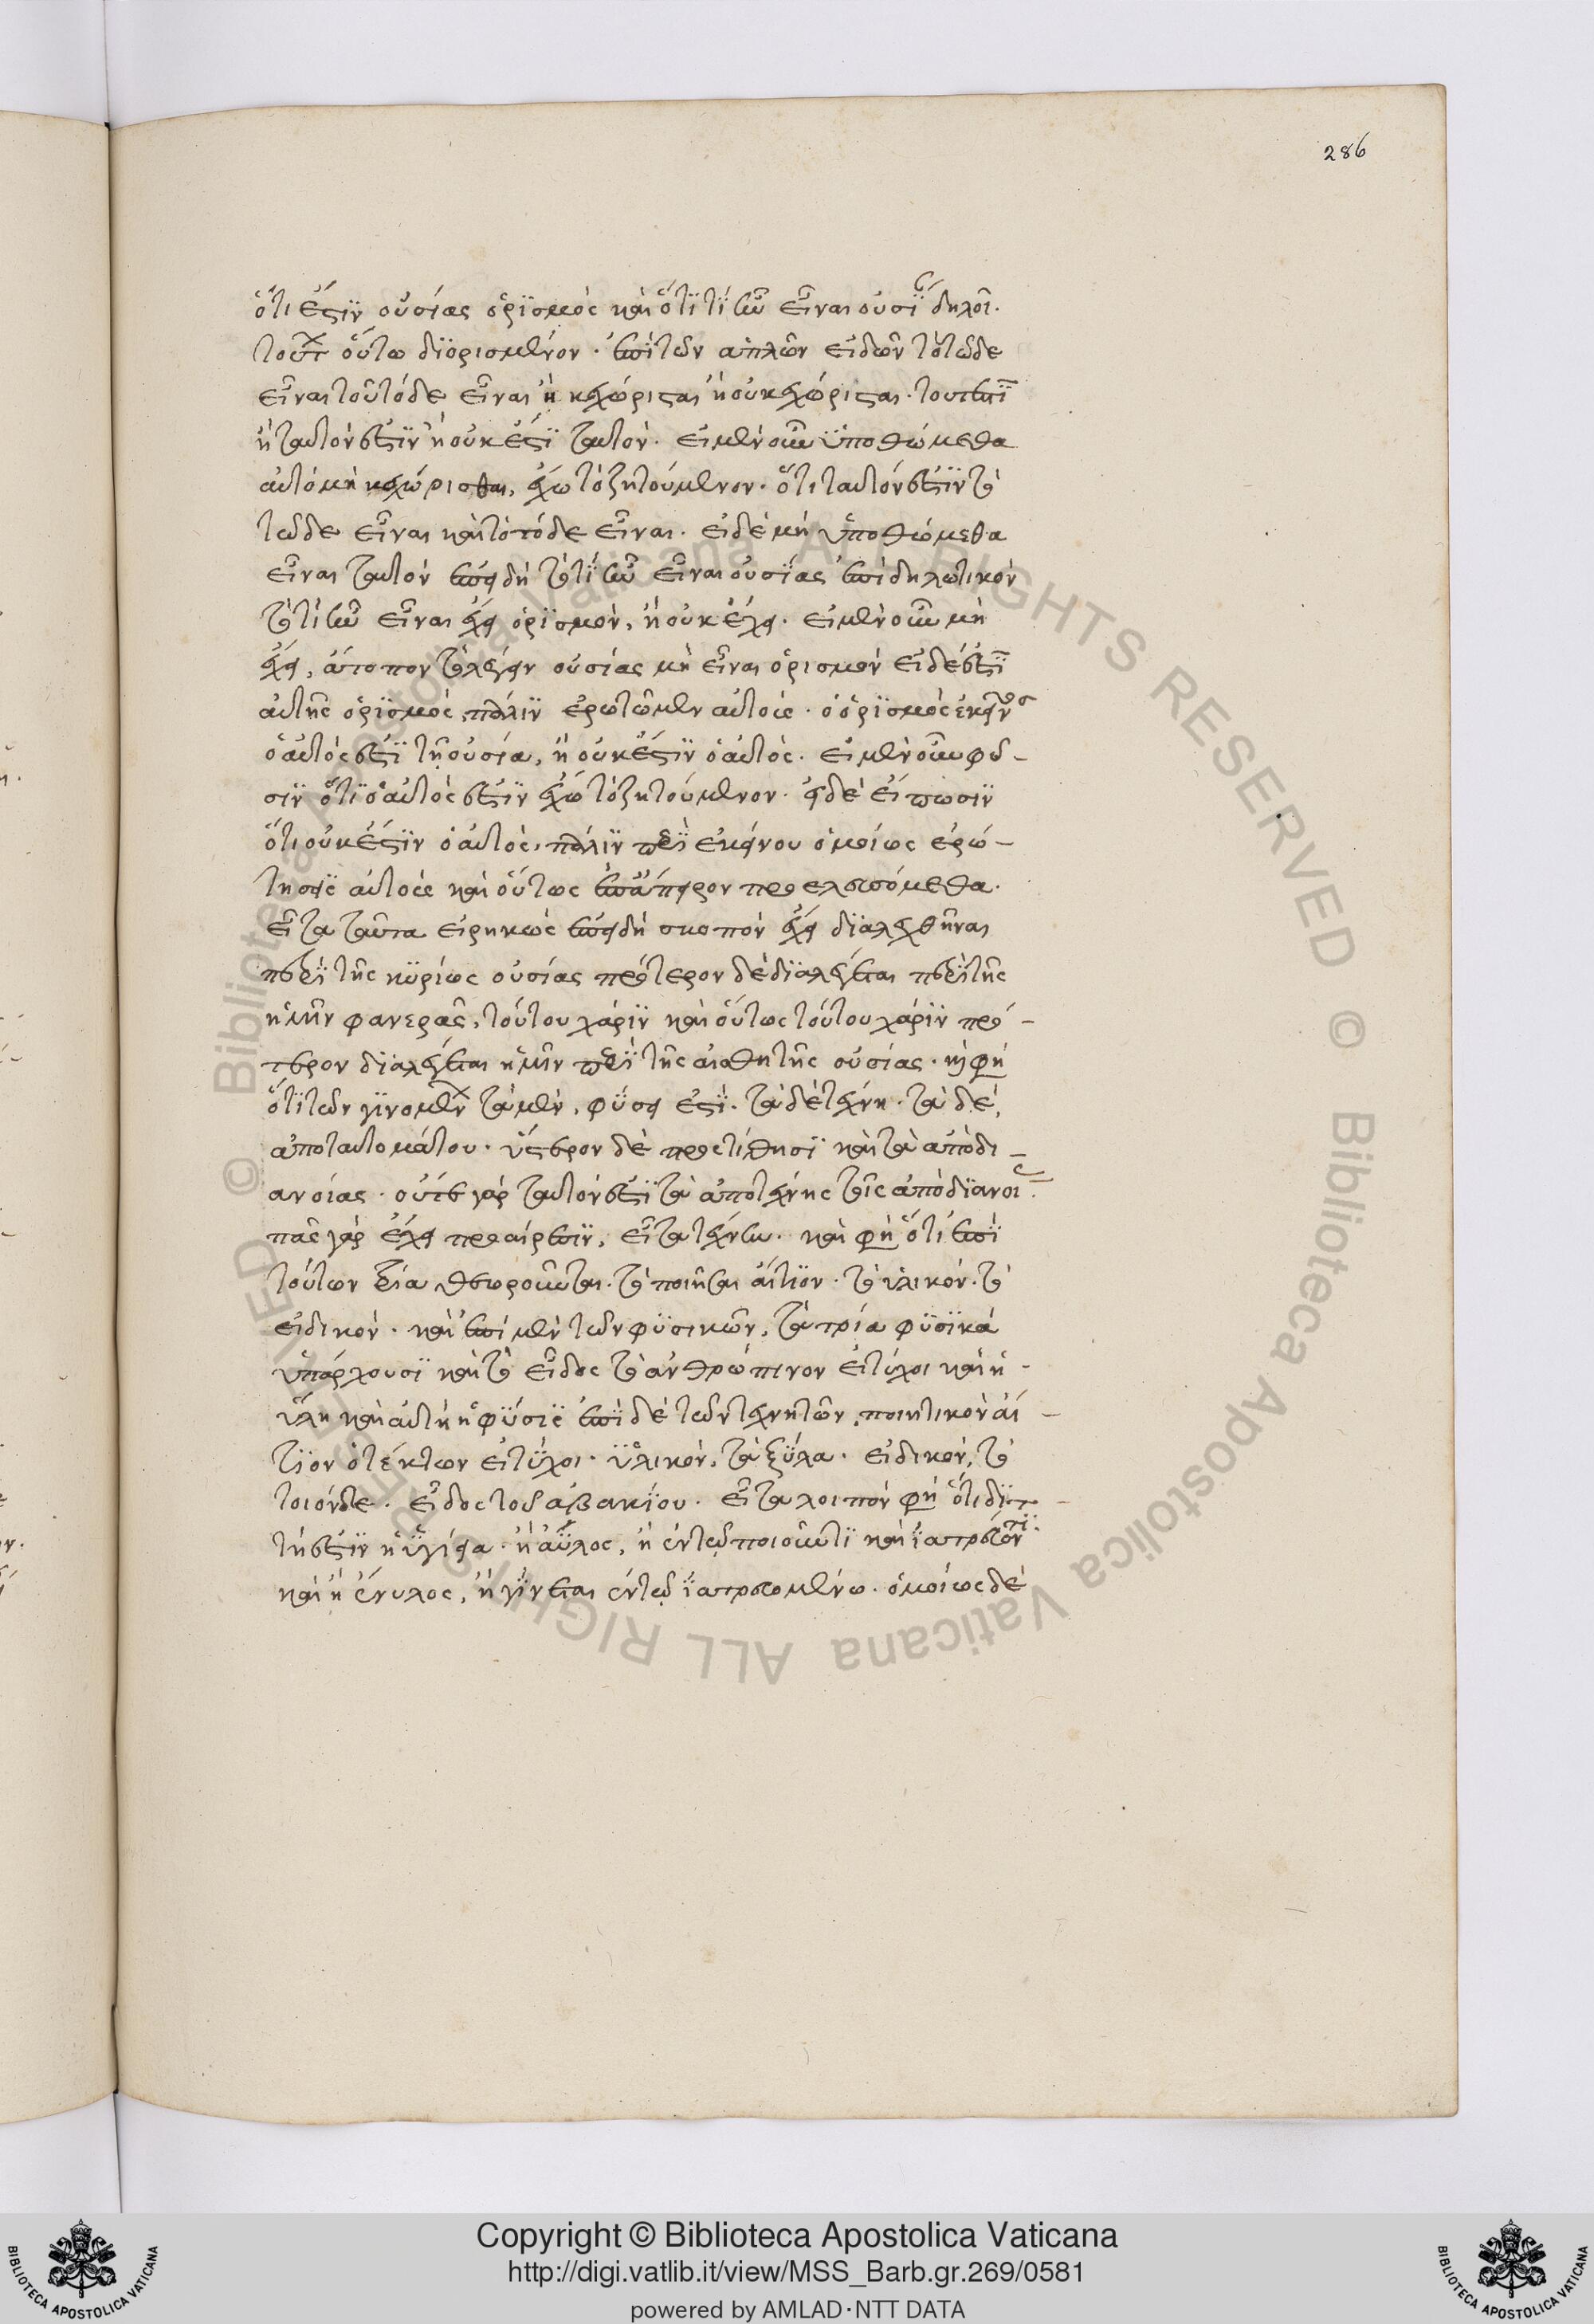 286
ὅτι ἐστὶν οὐσίας ὁρισμὸς καὶ ὅτι τί ἦν εἶναι οὐσίας δηλοῖ.
τούτων οὕτω διορισμένον. ἐπὶ τῶν ἁπλῶν εἰδῶν τὸ τῶδε
εἶναι τοῦ τόδε εἶναι ἢ κεχώρισται ἢ οὐ κεχώρισται. τουτέστιν
ἢ ταυτόν ἐστιν ἢ οὐκ ἔστι ταυτόν. εἰ μὲν οὖν ὑποθώμεθα
αὐτὸ μὴ κεχώρισθαι, ἔχω τὸ ζητούμενον. ὅτι ταυτόν ἐστιν τὸ
τῶδε εἶναι καὶ τὸ τόδε εἶναι. εἰ δὲ μὴ ὑποθώμεθα
εἶναι ταυτὸν ἐπειδὴ τὸ τί ἦν εἶναι οὐσίας ἐστὶ δηλωτικόν
τὸ τί ἦν εἶναι ἔχει ὁρισμόν, ἢ οὐκ ἔχει. εἰ μὲν οὖν μὴ
ἔχει, ἄτοπον τὸ λέγειν οὐσίας μὴ εἶναι ὁρισμόν εἰ δέ ἐστιν
αὐτῆς ὁρισμός, πάλιν ἐρωτῶμεν αὐτούς. ὁ ὁρισμὸς ἐκεῖνος
ὁ αὐτός ἐστι τῇ οὐσία, ἢ οὐκ ἔστιν ὁ αὐτός. εἰ μὲν οὖν φα-
σιν ὅτι ὁ αὐτός ἐστιν ἔχω τὸ ζητούμενον. εἰ δὲ εἴπωσιν
ὅτι οὐκ ἔστιν ὁ αὐτός, πάλιν περὶ ἐκείνου ὁμοίως ἐρώ-
τησις αὐτοῖς καὶ οὕτως ἐπ' ἄπειρον προελευσόμεθα.
εἶτα ταῦτα εἰρηκὼς ἐπειδὴ σκοπὸν ἔχει διαλεχθῆναι
περὶ τῆς κυρίως οὐσίας πρότερον δὲ διαλέγεται περὶ τῆς
ἡμῖν φανερᾶς, τούτου χάριν καὶ οὕτως τούτου χάριν πρό-
τερον διαλέγεται ἡμῖν περὶ τῆς αἰσθητῆς οὐσίας. καὶ φησὶ
ὅτι τῶν γινομένων τὰ μὲν, φύσει ἐστί. τὰ δὲ τέχνη. τὰ δὲ,
ἀπὸ ταυτομάτου. ὕστερον δὲ προστίθησι καὶ τὰ ἀπὸ δι-
ανοίας. οὔτε γὰρ ταυτόν ἐστι τὰ ἀπὸ τέχνης τοῖς ἀπὸ διανοίας.
πᾶς γὰρ ἔχει προαίρεσιν, εἶτα τέχνην. καὶ φησὶ ὅτι ἐπὶ
τούτων τρία θεωροῦνται. τὸ ποιητικὸν αἴτιον. τὸ ὑλικόν. τὸ
εἰδικόν. καὶ ἐπὶ μὲν τῶν φυσικῶν, τὰ τρία φυσικά
ὑπάρχουσι καὶ τὸ εἶδος τὸ ἀνθρώπινον εἰ τύχοι καὶ ἡ
ὕλη καὶ αὐτὴ ἡ φύσις ἐπὶ δὲ τῶν τεχνητῶν, ποιητικὸν αἴ-
τιον ὁ τέκτων εἰ τύχοι. ὑλικόν, τὰ ξύλα. εἰδικόν, τὸ
τοιόνδε. εἶδος τοῦ ἀβακίου. εἶτα λοιπόν φησὶ ὅτι διτ-
τή ἐστιν ἡ ὑγίεια. ἢ ἄϋλος, ἡ ἐν τῷ ποιοῦντι καὶ ἰατρεύοντι.
καὶ ἡ ἔνυλος, ἡ γίνεται ἐν τῷ ἰατρευομένω. ὁμοίως δὲ
© Biblioteca Apostolica Vaticana ALL RIGHTS RESERVED © Biblioteca Apostolica Vaticana ALL RIGHTS RESERVED
BIBLIOTECA APOSTOLICA VATICANA
Copyright © Biblioteca Apostolica Vaticana
http://digi.vatlib.it/view/MSS_Barb.gr.269/0581
powered by AMLAD·NTT DATA
BIBLIOTECA APOSTOLICA VATICANA